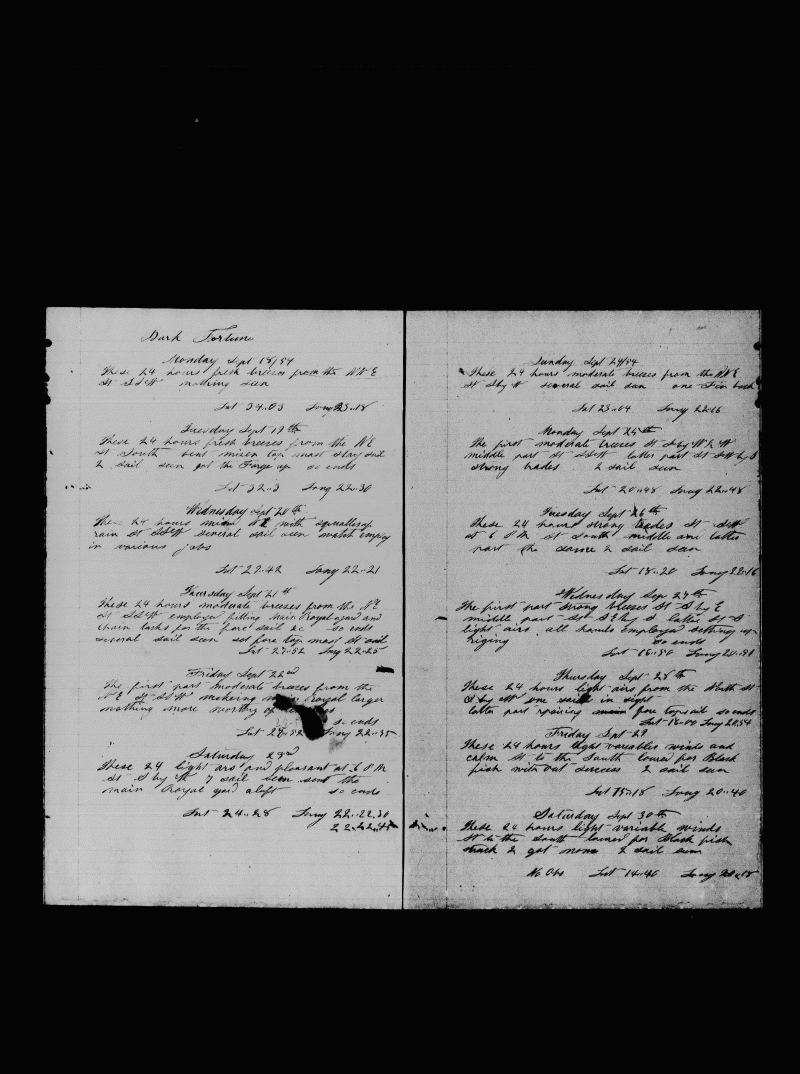 Bark Fortune
Monday Sept 18/54
These 24 hours fresh breezes from the NNE
St SSW nothing seen
Lat 34..03 Long 23..18
Tuesday Sept 19th
These 24 hours fresh breezes from the NE
St South bent mizen top mast stay sail
2 sail seen got the Forge up so ends
Lat 32..3 Long 22..30
Wednesday Sept 20th
These 24 hours wind NE with squalles of
rain St SSW several sail seen watch employ
in various jobs
Lat 29..42 Long 22..21
Thursday Sept 21st
These 24 hours moderate breezes from the NE
St SSW employed fitting Main Royal yard and
chain tacks for the fore sail &c so ends
several sail seen set fore top mast St sail
Lat 27..52 Long 22..25
Friday Sept 22nd
The first part moderate breezes from the
NE St SSW makeing main Royal larger
nothing more worthy of
so ends
Lat 25..52 Long 22..35
Saturday 23rd
These 24 light ars and pleasant at 6 PM
St S by W 7 sail seen sent the
main Royal yard aloft so ends
Lat 24..28 Long 22..22.30
Sunday Sept 24/54
These 24 hours moderate breezes from the NNE
St S by W several sail seen one Fin back
Lat 23..04 Long 22..16
Monday Sept 25th
The first moderate breezes St S by W ½ W
middle part St SSW latter part St SW by S
strong trades 2 sail seen
Lat 20..48 Long 22..48
Tuesday Sept 26th
These 24 hours strong trades St SSW
at 6 PM St South middle and latter
part the same 2 sail seen
Lat 18..20 Long 22..16
Wednesday Sep 27th
The first part strong breezes St S by E
middle part St SE by S latter St S
light airs all hands employed setting up
riging so ends
Lat 16..50 Long 20..51
Thursday Sept 28th
These 24 hours light airs from the North St
S by W one sail in sight
latter part repairing main fore topsail so ends
Lat 16..00 Long 20.54
Friday Sept 29
These 24 hours light variables winds and
calm St to the South lowed for Black
fish with out success 2 sail seen
Lat 15..18 Long 20..40
Saturday Sept 30th
These 24 hours light variable winds
St to the South lowed for Black fish
struck & got none 2 sail seen
No Obs Lat 14..40 Long 20..18